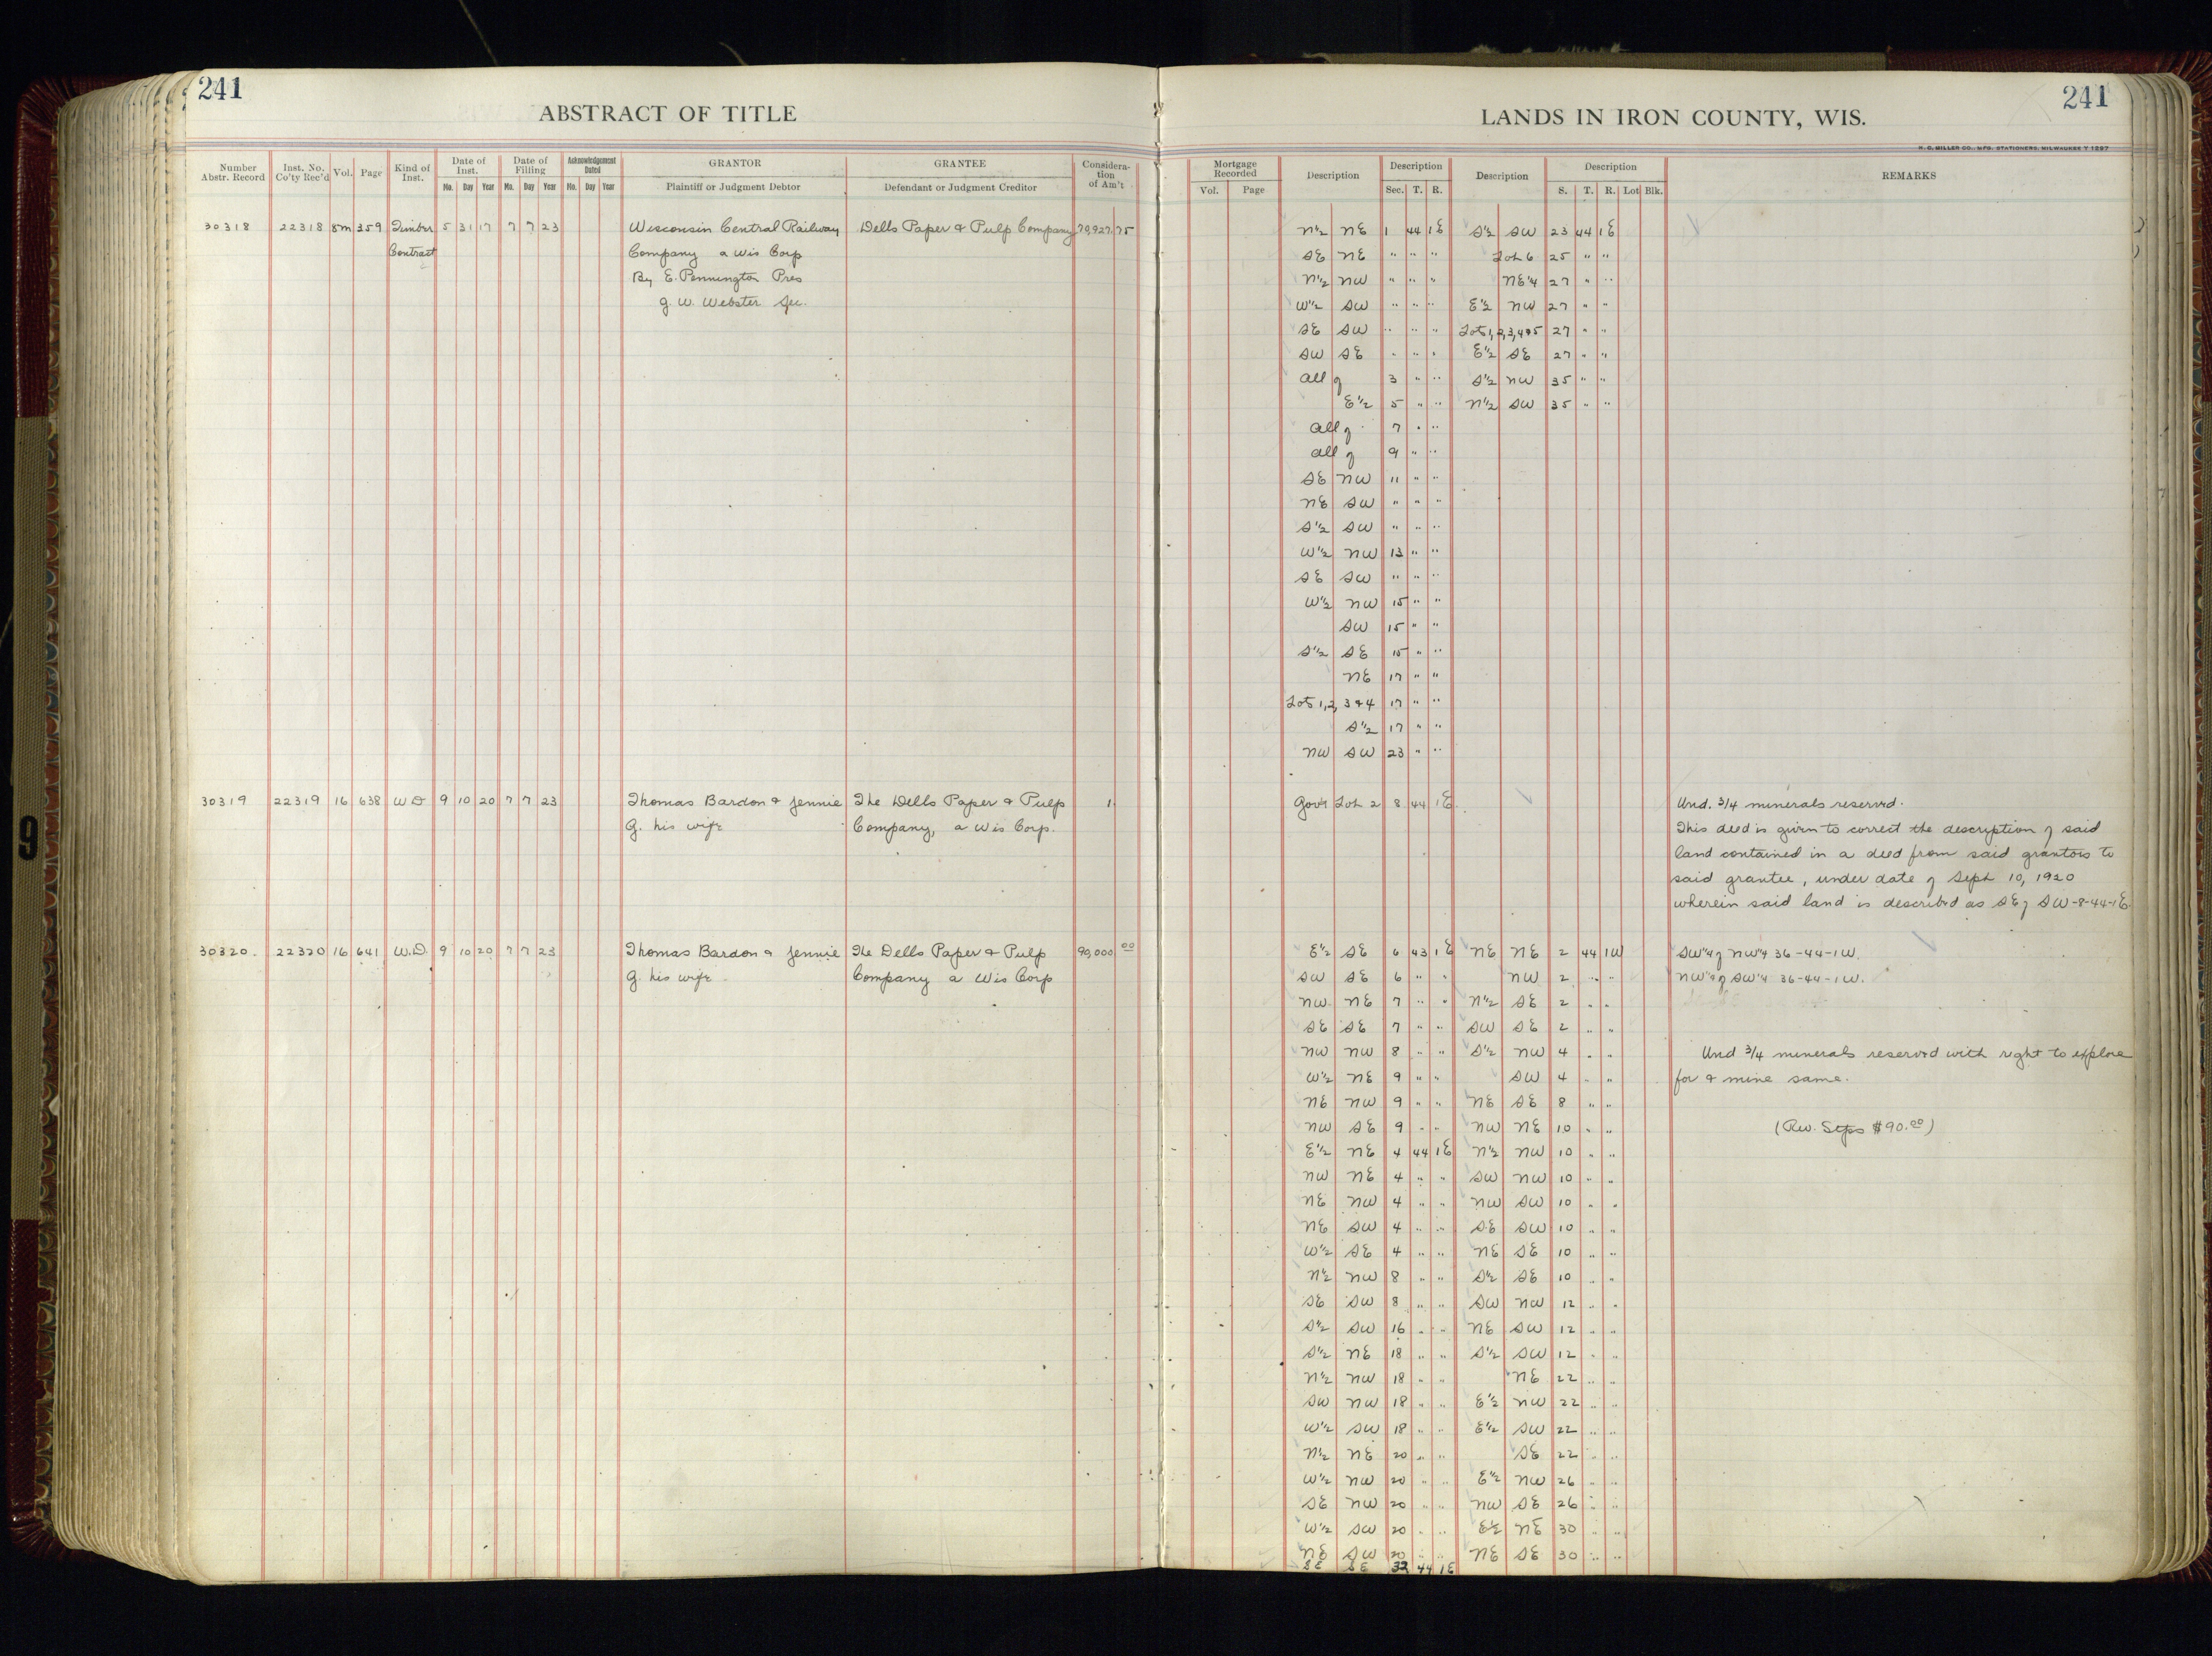 241
ABSTRACT OF TITLE
Number Abstr. Record Inst. No. Co'ty Rec'd Vol. Page Kind of Inst. Date of Inst. Mo. Day Year Date of Filing Mo. Day Year Acknowledgement Dated Mo. Day Year GRANTOR Plaintiff or Judgment Debtor GRANTEE Defendant or Judgment Creditor Consideration of Am't
30318 22318 8m 359 Timber 5 31 17 7 7 23 Wisconsin Central Railway Dells Paper & Pulp Company 79,927.75
Contract Company a Wis Corp
By E. Pennington Pres
G. W. Webster Sec.
30319 22319 16 638 W D 9 10 20 7 7 23 Thomas Bardon & Jennie The Dells Paper & Pulp 1.
G. his wife Company, a Wis Corp.
30320. 22320 16 641 W.D. 9 10 20 7 7 23 Thomas Bardon & Jennie The Dells Paper & Pulp 90,000 00
G. his wife Company a Wis Corp
241
LANDS IN IRON COUNTY, WIS.
H. C. MILLER CO., MFG. STATIONERS, MILWAUKEE
Mortgage Recorded Vol. Page Description Description Sec. T. R. Description Description S. T. R. Lot Blk. REMARKS
N½ NE 1 44 1E S½ SW 23 44 1E
SE NE " " " Lot 6 25 " "
N½ NW " " " NE¼ 27 " "
W½ SW " " " E½ NW 27 " "
SE SW " " " Lots 1,2,3,4&5 27 " "
SW SE " " " E½ SE 27 " "
All of 3 " " S½ NW 35 " "
E½ 5 " " N½ SW 35 " "
All of 7 " "
All of 9 " "
SE NW 11 " "
NE SW " " "
S½ SW " " "
W½ NW 13 " "
SE SW " " "
W½ NW 15 " "
SW 15 " "
S½ SE 15 " "
NE 17 " "
Lots 1,2, 3 & 4 17 " "
S½ 17 " "
NW SW 23 " "
Gov't Lot 2 8 44 1E Und. 3/4 minerals reserved.
This deed is given to correct the description of said
land contained in a deed from said grantors to
said grantee, under date of Sept 10, 1920
wherein said land is described as SE of SW-8-44-1E
E½ SE 6 43 1E NE NE 2 44 1W SW¼ of NW¼ 36-44-1W.
SW SE 6 " " NW 2 " " NW¼ of SW¼ 36-44-1W.
NW NE 7 " " N½ SE 2 " "
SE SE 7 " " SW SE 2 " "
NW NW 8 " " S½ NW 4 " " Und 3/4 minerals reserved with right to explore
W½ NE 9 " " SW 4 " " for & mine same.
NE NW 9 " " NE SE 8 " "
NW SE 9 " " NW NE 10 " " (Rev. Stps $90.00)
E½ NE 4 44 1E N½ NW 10 " "
NW NE 4 " " SW NW 10 " "
NE NW 4 " " NW SW 10 " "
NE SW 4 " " SE SW 10 " "
W½ SE 4 " " NE SE 10 " "
N½ NW 8 " " S½ SE 10 " "
SE SW 8 " " SW NW 12 " "
S½ SW 16 " " NE SW 12 " "
S½ NE 18 " " S½ SW 12 " "
N½ NW 18 " " NE 22 " "
SW NW 18 " " E½ NW 22 " "
W½ SW 18 " " E½ SW 22 " "
N½ NE 20 " " SE 22 " "
W½ NW 20 " " E½ NW 26 " "
SE NW 20 " " NW SE 26 " "
W½ SW 20 " " E½ NE 30 " "
NE SW 20 " " NE SE 30 " "
SE SE 32 44 1E
9